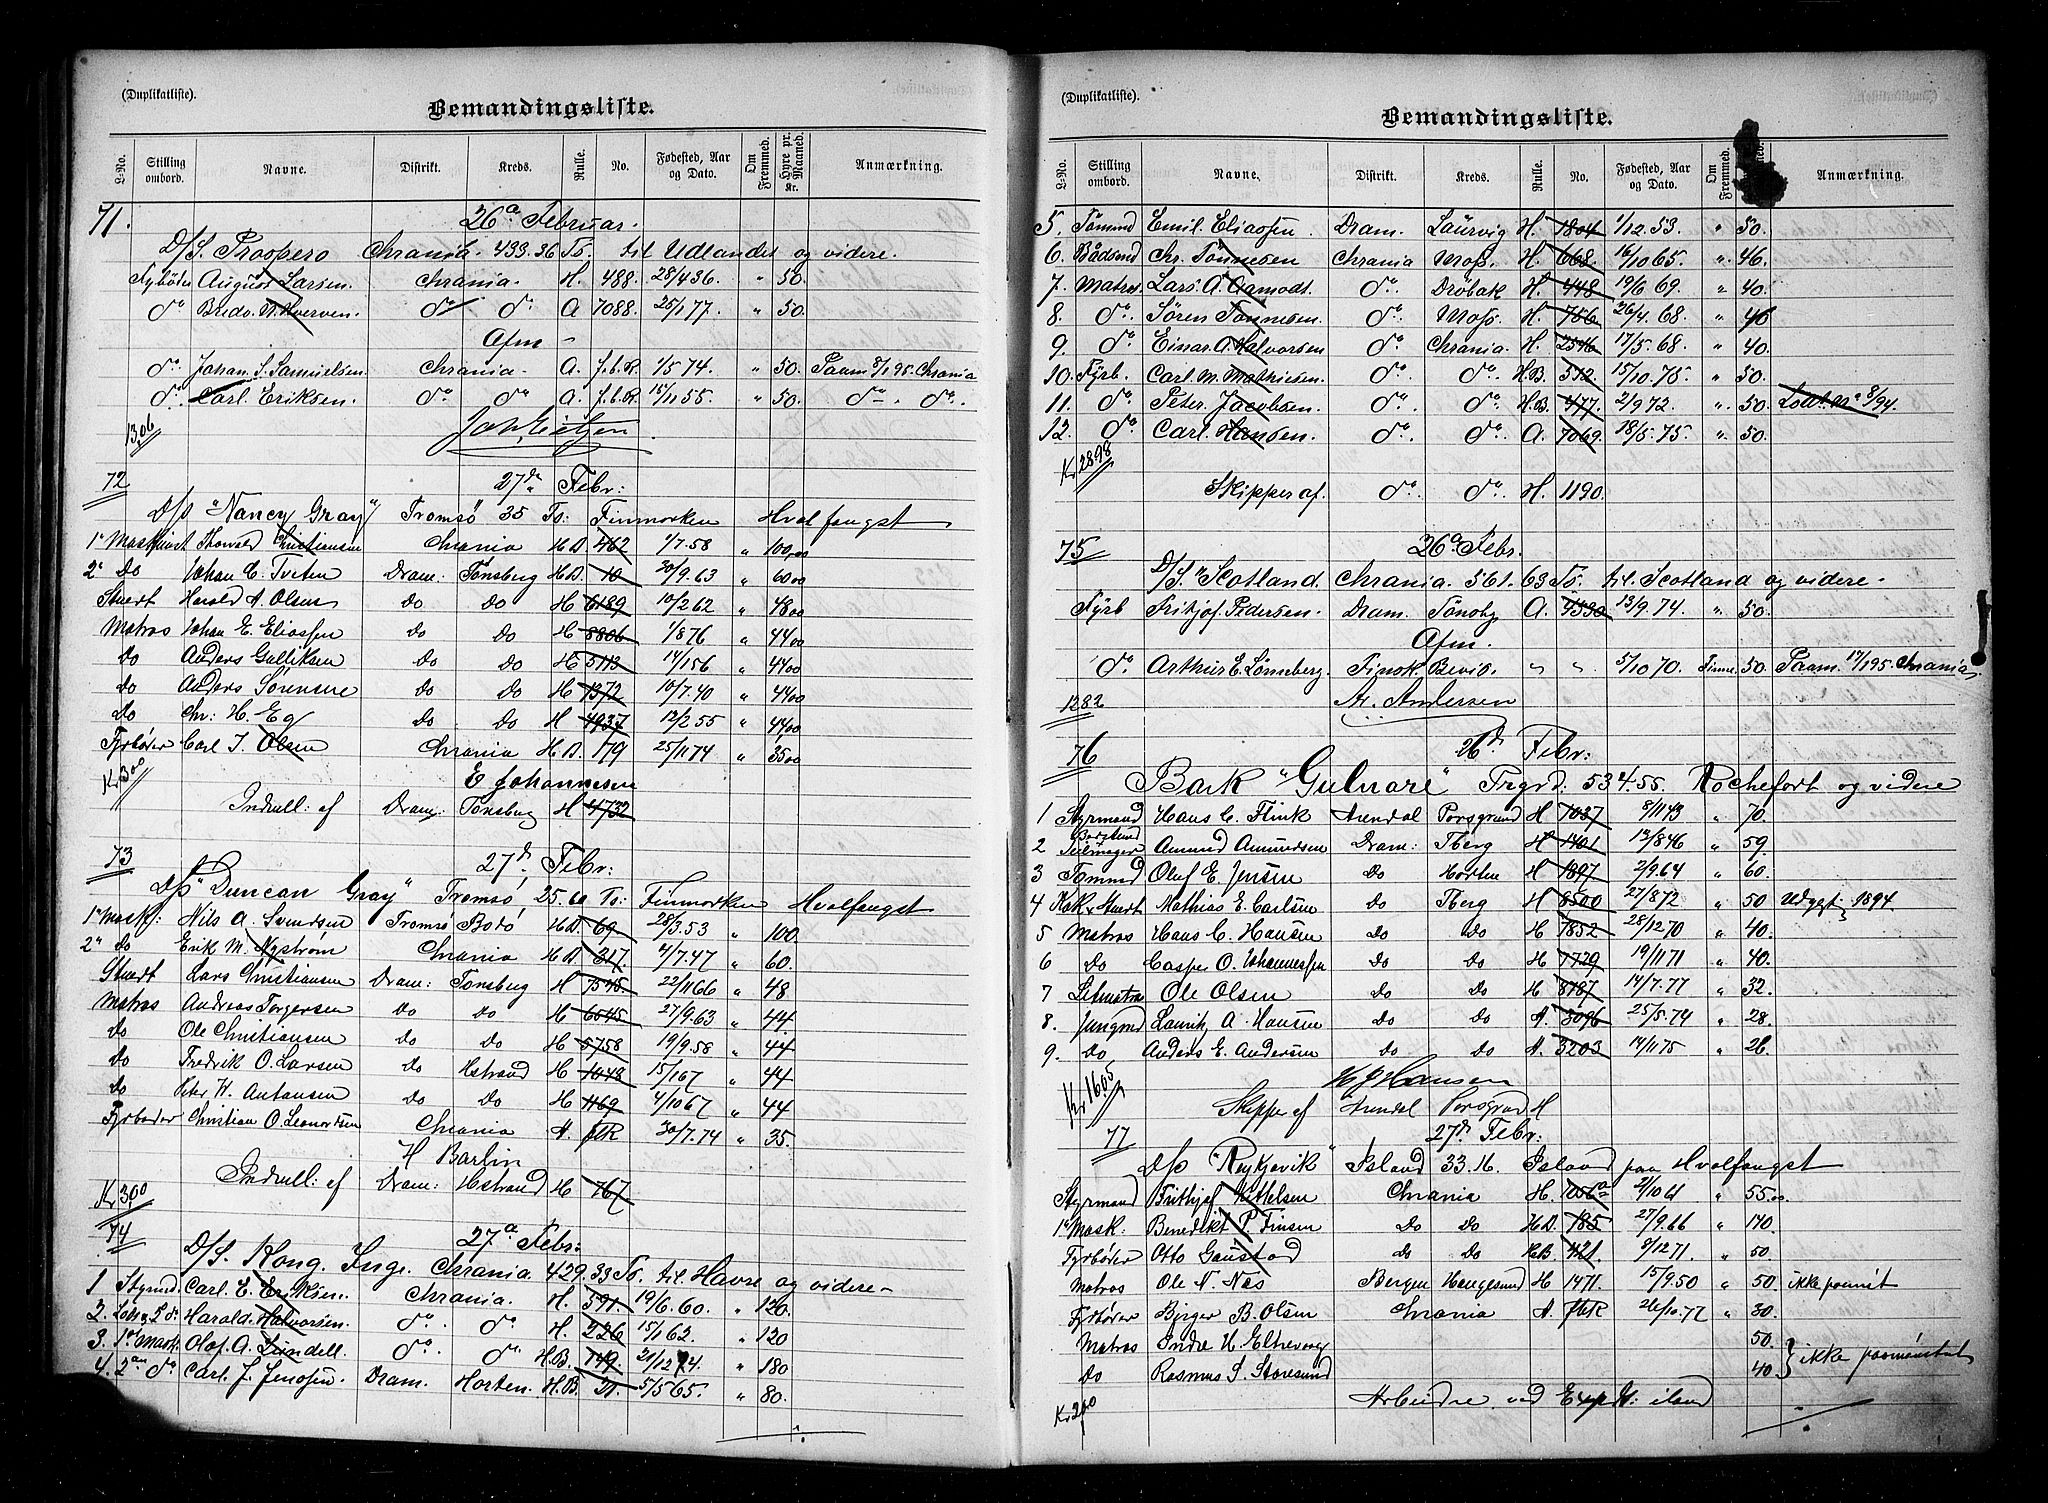 (Duplikatliste).
Bemandingsliste.
L-No. Stilling ombord. Navne. Distrikt. Kreds. Rulle. No. Fødested, Aar og Dato. Om Fremmed. Hyre pr. Maaned. Kr. Anmærkning.
71. 26a Februar.
D/S. Prospero Chrania. 433.36 To. til Udlandet og videre.
Fyrbøder August Larsen. Chrania. H. 488. 28/4 36. " 50.
do Bredo. Hverven. do do A 7088. 25/1 77. " 50.
Afm
do Johan. S. Samuelsen. Chrania. A. f.b.R. 1/5 74. " 50. Paam 8/1 95. Chrania
do Carl Eriksen. do do A. f.b.R. 15/11 55. " 50. do. do.
1306
72 27de Febr:
D/s "Nancy Gray" Tromsø 35 To: Finmarken Hvalfangst
1e Maskinist Thorvald Christiansen Chrania H D 462 1/7.58 " 100,00
2e Do Johan C. Tveten Dram: Tønsberg H D. 10 20/9.63 " 60 00
Stuert Harald A. Olsen Do Do H 6189 10/2 62 " 48 00
Matros Johan E. Eliassen Do Do H 8806 1/8 76 " 44 00
Do Anders Gulliksen Do Do H 5113 14/1 56 " 44 00
Do Anders Sørensen Do Do H 1372 10/7.40 " 44 00
Do Chr: H. Eg Do Do H 4937 12/2 55 " 44 00
Fyrbøder Carl J. Olsen Chrania H B 179 25/11 74 " 35 00
Kr 300 E Johannesen
Indrull: af Dram: Tønsberg H 4732
73 27d. Febr:
D/s "Duncan Gray" Tromsø 25.60 To: Finmarken Hvalfangst
1e Mask: Nils A. Tromsø Bodø H D. 69. 28/3.53 " 100.
2e Do Erik M. Nystrøm Chrania H D 317. 4/7.47 " 60.
Stuert Lars Christiansen Dram: Tønsberg H 7545 22/11 66 " 48
Matros Andreas Torgersen Do Do H 6045 27/9.63 " 44.
Do Ole Christiansen Do Do H 5758 19/9.58 " 44
Do Fredrik O. Larsen Do Hstrand H 1048 15/1 67 " 44
Do Peter H. Antonsen Do Do H 1169 4/10 67 " 44
Fyrbøder Christian O. Leonortsen Chrania A. fbR 30/7.74 " 35.
H Barlin
Indrull: af Dram: Hstrand H 767
Kr 300
74 27a Febr:
D/S. Kong. Inge. Chrania. 429.33 To. til Havre og videre
1 Styrmd. Carl. E. Eriksen. Chrania. H. 591. 19/6.60. " 120.
2. do. Harald. Halvorsen. do. do H. 226 15/1 62. " 120
3. 1st Mask. Olof. A. Lundell. do. do H.B. 149. 21/12 74. " 180
4. 2en do Carl. J. Jenssen. Dram. Horten. H.B. 21. 5/5 65. " 80.
(Duplikatliste).
Bemandingsliste.
L-No. Stilling ombord. Navne. Distrikt. Kreds. Rulle. No. Fødested, Aar og Dato. Om Fremmed. Anmærkning.
5. Tømmd Emil. Eliassen. Dram. Laurvig H. 1804 1/12.53. " 50.
6. Bådsmd Chr. Tønnesen Chrania Moss. H. 668. 16/10 65. " 46.
7. Matros Lars A. Aamodt. do. Drøbak H. 448 19/6 69. " 40.
8. do. Søren Tønnesen. do. Moss. H. 756 26/4.68. " 40
9. do Einar A. Halvorsen do. Chrania. H. 2516 17/5.68. " 40.
10. Fyrb. Carl. M. Mathiesen. do. do. H.B. 512 15/10.75. " 50.
11. do. Peter. Jacobsen. do. do. H.B. 477. 2/9 72. " 50. 8/94.
12. do Carl. Hansen. do. do. A. 7069. 18/5.75. " 50.
Kr 2898
Skipper af. do. do. H. 1190.
75 26a Febr.
D/S. "Scotland. Chrania. 561.63 To. til. Scotland og videre.
Fyrb Fritjof Pedersen. Dram. Tønsbg A. 4330 13/9.74. " 50.
Afm.
do. Arthur E. Lønneberg. " " 5/10 70. 50. Paam. 17/1 95. Chrania
1282 A. Andersen
76 26d Febr:
Bark "Gulnare" Trgrd: 534.55 Rochefort og videre
1 Styrmand Hans C. Flink Arendal Porsgrund H 1037 8/11 43 " 70.
2 Seilmager Amund Amundsen Dram: Tberg H 1401 13/8 46 " 59
3 Tømmd Olaf E. Jensen Do Horten H 1897 2/9.64 " 60.
4 Kok & Stuert Mathias E. Carlsen Do Tberg H 8500 27/8 72 " 50 Udgyt: 1894
5 Matros Hans C. Hansen Do Do H 7852 28/12 70 " 40.
6 Do Casper O. Johannessen Do Do H 7729 19/11 71 " 40.
7 Letmatros Ole Olsen Do Do H 8187 14/7.77 " 32.
8. Jungmd Lauritz A. Hansen Do Do A. 3096 25/5.74 " 28.
9. Do Anders E. Andersen Do Do A. 3203 14/11 75 " 26.
Kr 1605 H J Hansen
Skipper af Arendal Porsgrund H
77 27d Febr:
D/s "Reykjavik" Island 33.16. Island paa Hvalfangst
Styrmand Frithjof Kittelsen Chrania H. 1056a 2/10 61 " 55.00
1e Mask: Benedikt P. Finsen Do Do H D. 185. 27/9.66 " 140.
Fyrbøder Otto Gaustad Do Do H B. 421. 8/12 71. " 50.
Matros Ole N. Næs Bergen Haugesund H 1471. 15/9.50 " 50 ikke paamt
Fyrbøder Birger B. Olsen Chrania A. fbR 26/10.77 " 30.
Matros Endre H. 50.
Do Rasmus S. Storesund 40. } ikke paamønstret
Kr 200 Arbeidre ved